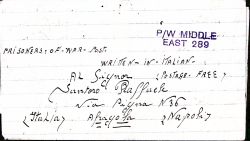 P/W MIDDLE
EAST 289
PRISONERS-OF-WAR-POST
WRITTEN-IN-ITALIAN
Al Signor (POSTAGE FREE)
Santoro Raffaele
Via N 36
(Italia) Afragola (Napoli)